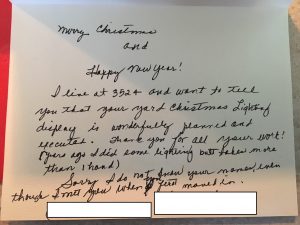 Merry Christmas
and
Happy New Year!
I live at 3524 and want to tell
you that your yard Christmas Light
display is wonderfully planned and
executed. Thank you for all your work!
(years ago I did some lighting but takes more
than 1 hand)
Sorry I do not know your names, even
though I met you when you first moved in.